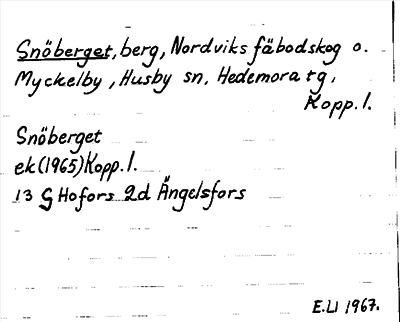 Snöberget, berg, Nordviks fäbodskog o.
Myckelby, Husby sn, Hedemora tg,
Kopp. l.
Snöberget
ek (1965) Kopp. l.
13 G Hofors 2d Ängelsfors
E.LI 1967.